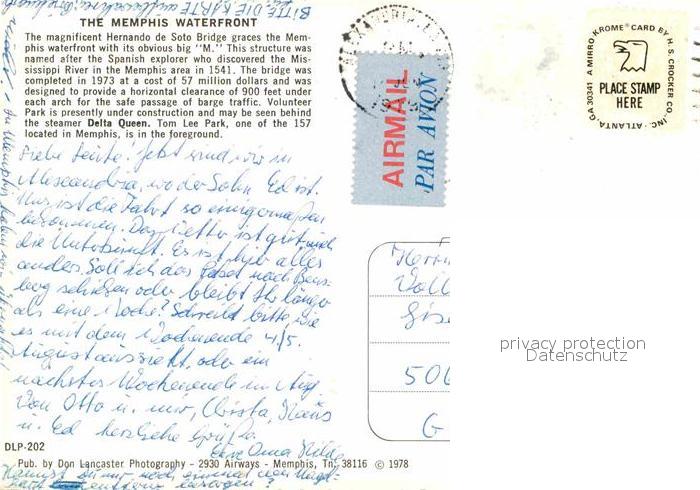 BITTE DIE KARTE
THE MEMPHIS WATERFRONT
The magnificent Hernando de Soto Bridge graces the Mem-
phis waterfront with its obvious big "M." This structure was
named after the Spanish explorer who discovered the Mis-
sissippi River in the Memphis area in 1541. The bridge was
completed in 1973 at a cost of 57 million dollars and was
designed to provide a horizontal clearance of 900 feet under
each arch for the safe passage of barge traffic. Volunteer
Park is presently under construction and may be seen behind
the steamer Delta Queen. Tom Lee Park, one of the 157
located in Memphis, is in the foreground.
AIRMAIL
PAR AVION
A MIRRO KROME® CARD BY H. S. CROCKER CO., INC. ATLANTA, GA 30341
PLACE STAMP
HERE
Liebe Leute! Jetzt sind wir in
Alexandria, wo der Sohn Ed ist.
Uns ist die Fahrt so einigermaßen
bekommen. Das Wetter ist gut
die Unterkunft. Es ist hier alles
anders. Soll ich das Paket nach
schicken oder bleibt Ihr länger
als eine Woche? Schreibt bitte wie
es mit dem Wochenende 4/5.
August aussieht, oder ein
nächstes Wochenende im Aug.
Von Otto u. mir, Christa, Klaus
u. Ed herzliche Grüße
Eure Oma Hilde
Kannst du mir noch einmal
besorgen?
Herrn
Voll
Gise
506
G
privacy protection
Datenschutz
DLP-202
Pub. by Don Lancaster Photography - 2930 Airways - Memphis, Tn. 38116 © 1978